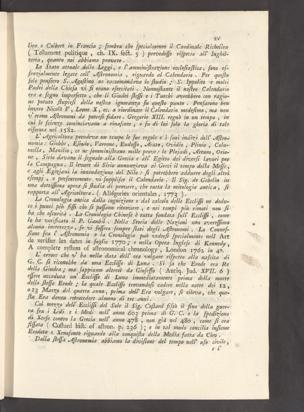 xv
tico e Colbert in Francia ; sembra che specialmente il Cardinale Richelieu
( Testament politique , ch. IX. sect. 5 ) prevedesse rispetto all' Inghil-
terra, quanto noi abbiamo provato.
Lo Stato attuale delle Leggi, e l'amministrazione ecclesiastica, sono es-
senzialmente legate coll' Astronomia , riguardo al Calendario . Per questo
solo pensiero S. Agostino ne raccomandava lo studio ; S. Ippolito e molti
Padri della Chiesa vi si erano esercitati. Nonostante il nostro Calendario
era a segno imperfetto , che gli Giudei stessi e i Turchi avrebbero con ragio-
ne potuto stupirsi della nostra ignoranza su questo punto. Pensarono ben
invero Nicolò V. Leone X , ec. a riordinare il Calendario medesimo, ma non
v' erano Astronomi da potersi fidare. Gregorio XIII. regnò in un tempo , in
cui le scienze cominciavano a rinascere , e fu di lui solo la gloria di tale
riforma nel 1582.
L' Agricoltura prendeva un tempo le sue regole e i suoi indizj dall' Astro-
nomia : Giobbe , Esiodo, Varrone , Eudosso , Arato, Ovidio , Plinio , Colu-
mella, Manilio , ce ne somministrano mille prove : le Plejadi , Arturo, Orio-
ne , Sirio davano il segnale alla Grecia e all' Egitto dei diversi lavori per
la Campagna : il levare di Sirio annunziava ai Greci il tempo della Messe,
e agli Egiziani la innondazione del Nilo : si potrebbero addurre degli altri
esempj , e presentemente vi supplisce il Calendario . Il Sig. de Gebelin in
una dottissima opera si studia di provare, che tutta la mitologia antica , si
rapporta all' Agricoltura. ( Allegories orientales , 1773 ).
La Cronologia antica dalla cognizione e dal calcolo delle Ecclissi ne dedu-
ce i punti più fissi che si possano ritrovare , e nei tempi più rimoti non vi
ha che oscurità . La Cronologia Chinese è tutta fondata sull' Ecclissi , come
lo ha verificato il P. Gaubil . Nella Storia delle Nazioni non avressimo
alcuna incertezza , se vi fossero sempre stati degli Astronomi . La Connes-
sione fra l' Astronomia e la Cronologia può vedersi specialmente nell' Art
de verifier les dates in foglio 1770 ; e nella Opera Inglese di Kennedy ,
A complete system of astronomical chronology . London 1762 in 4°.
L' errore che v' ha nella data dell' era volgare rispetto alla nascita di
G. C. si riconobbe da una Ecclisse di Luna . Si sa che Erode era Re
della Giudea , noi sappiamo altresì da Giuseffo ( Antiq. Jud. XVII. 6 )
essere accaduta un' Ecclisse di Luna immediatamente prima della morte
dello stesso Erode ; la quale Ecclisse trovandosi caduta nella notte dei 12,
e 13 Marzo del quarto anno, prima dell' Era volgare, si rileva, che que-
sta Era dovea retrocedere almeno di tre anni.
Col mezzo dell' Ecclissi del Sole il Sig. Costard fissò il fine della guer-
ra fra i Lidj e i Medi nell' anno 603 prima di G. C. e la spedizione
di Xerse contro la Grecia nell' anno 478 , non già nel 480 , come si era
fissata ( Costard hist. of astron. p. 236 ); e in tal modo concilia insieme
Erodoto e Xenofonte riguardo alla conquista della Media fatta da Ciro .
Dalla stessa Astronomia abbiamo la divisione del tempo nell' uso civile,
e c